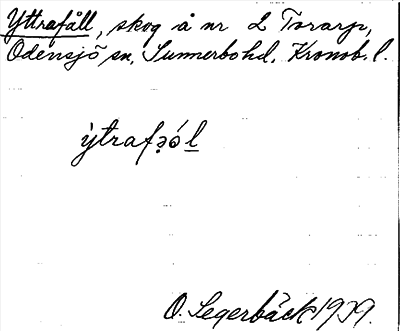 Yttrafåll, skog å nr 2 Torarp,
Odensjö sn, Sunnerbo hd, Kronob. l.
ỳtrafǝól
O. Segerbäck 1939.